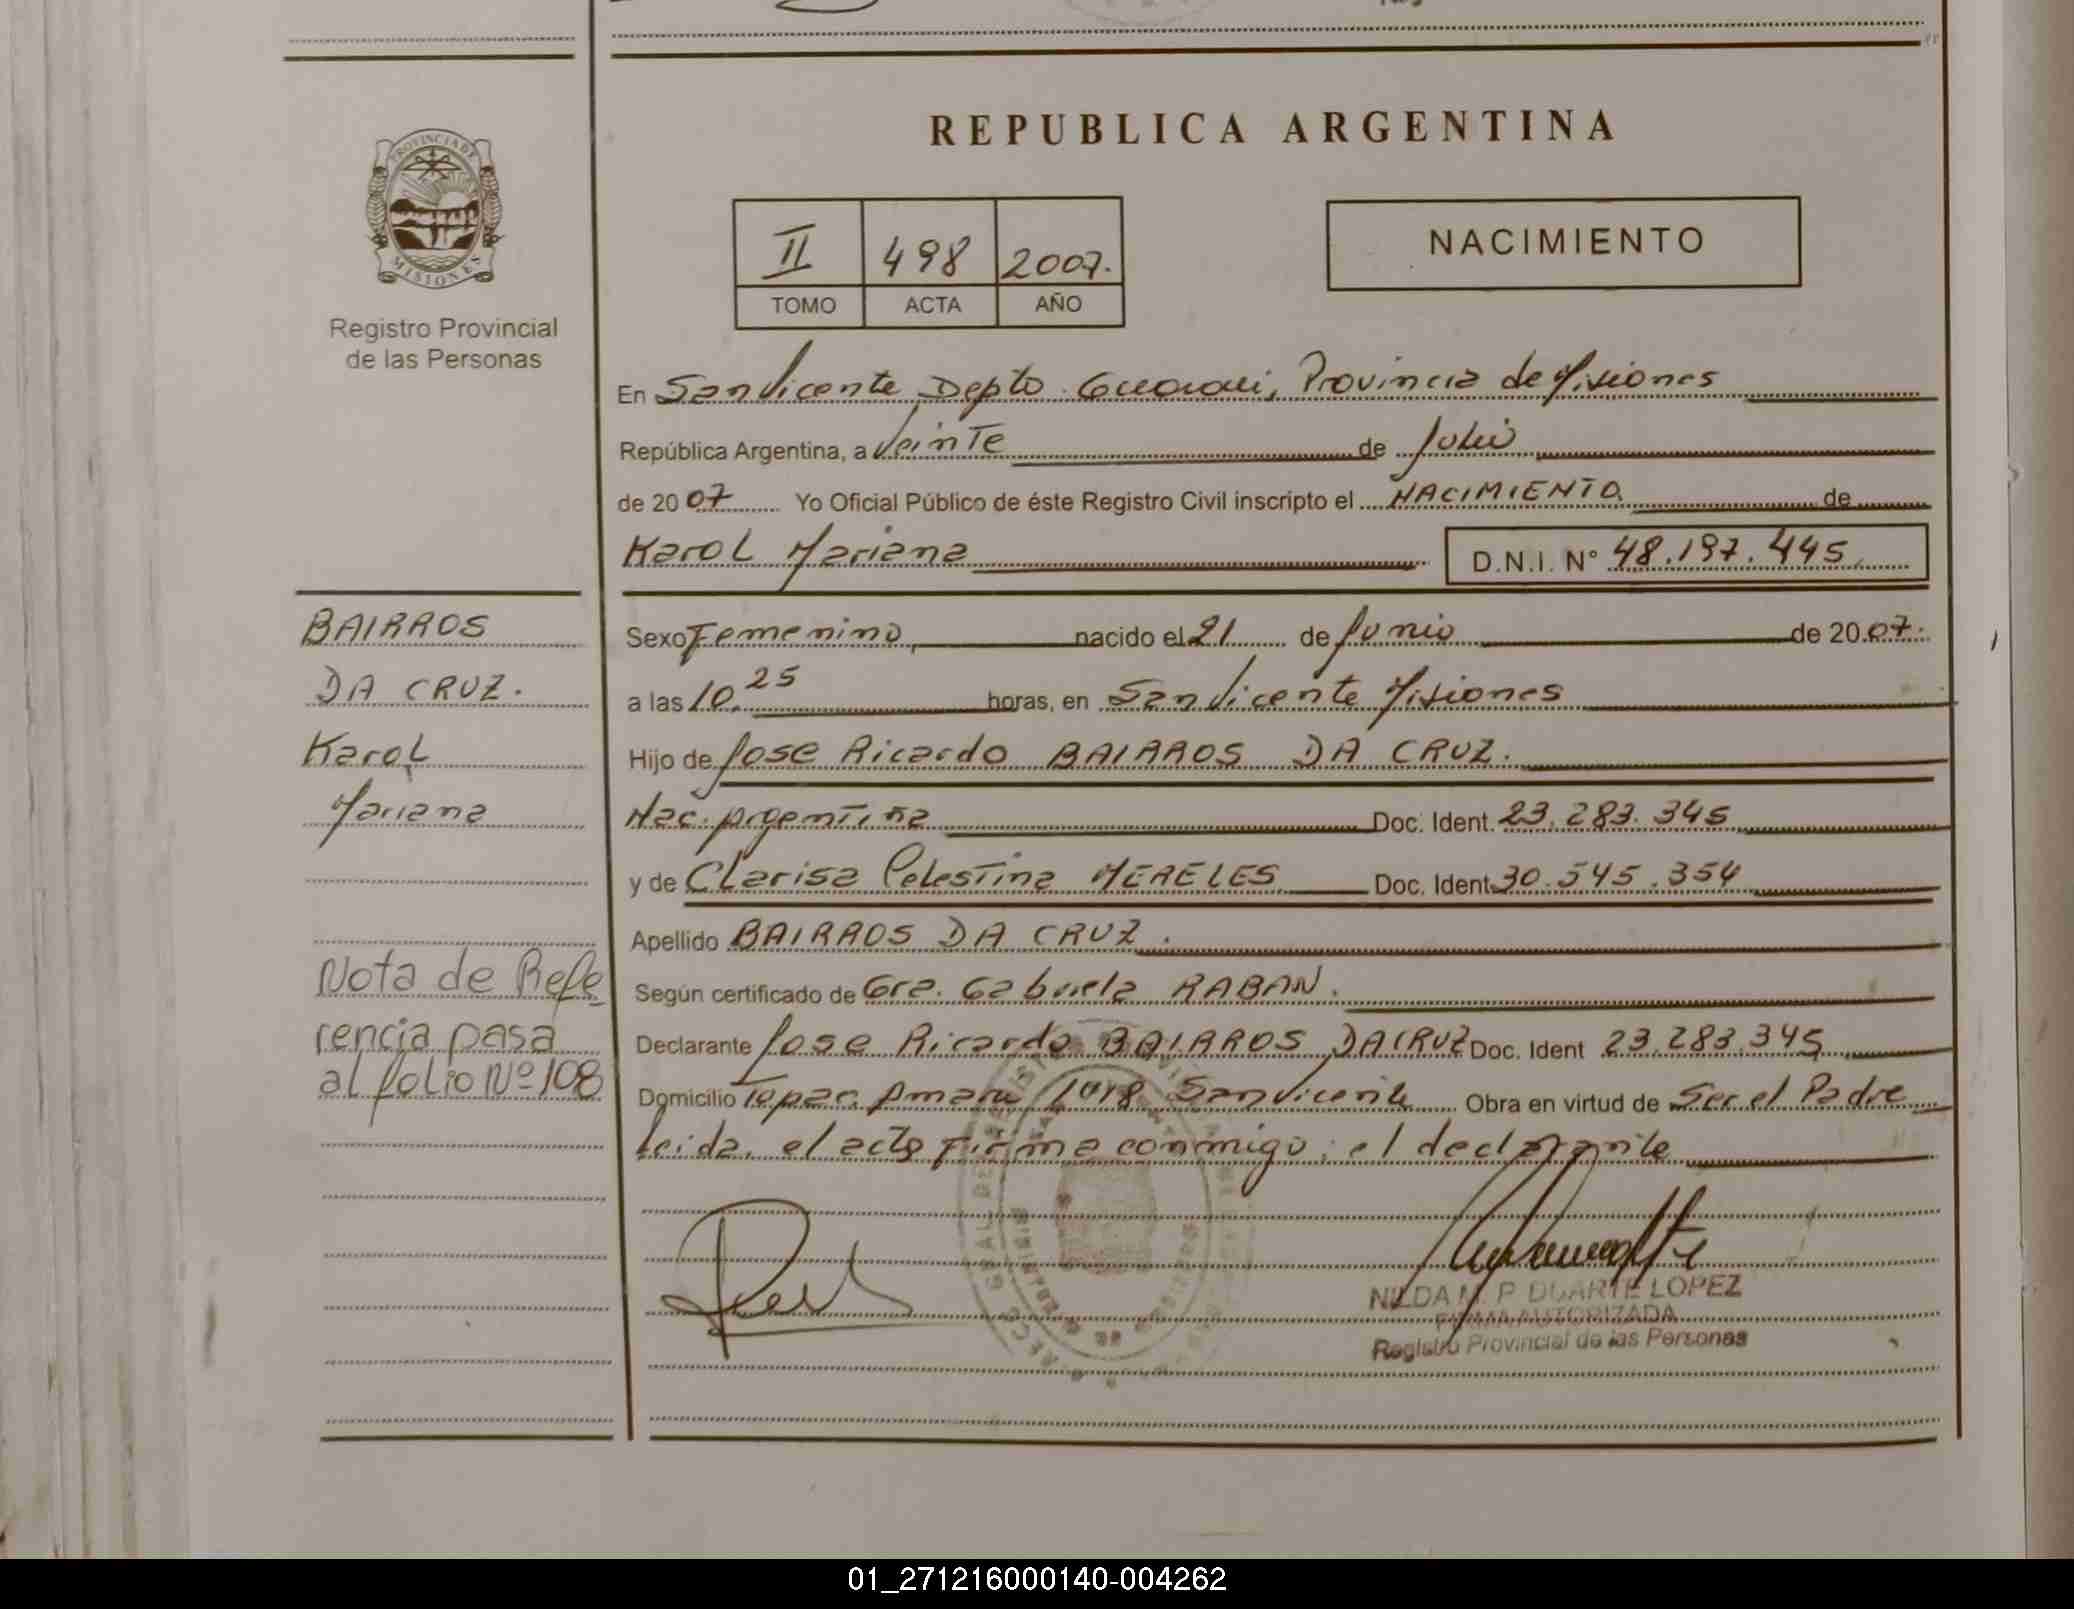 REPUBLICA ARGENTINA
PROVINCIA DE
MISIONES
Registro Provincial
de las Personas
II 498 2007.
TOMO ACTA AÑO
NACIMIENTO
En San Vicente Depto Guarani, Provincia de Misiones
República Argentina, a Veinte de Julio
de 2007 Yo Oficial Público de éste Registro Civil inscripto el NACIMIENTO de
Karol Mariana D.N.I. N° 48.197.445
BAIRROS
DA CRUZ.
Karol
Mariana
Nota de Refe
rencia pasa
al folio Nº 108
Sexo Femenino nacido el 21 de Junio de 2007.
a las 10,25 horas, en San Vicente Misiones
Hijo de Jose Ricardo BAIRROS DA CRUZ.
Nac. Argentina Doc. Ident. 23.283.345
y de Clarisa Celestina MERELES Doc. Ident. 30.545.354
Apellido BAIRROS DA CRUZ.
Según certificado de Gra. Gabriela RABAN.
Declarante Jose Ricardo BAIRROS DA CRUZ Doc. Ident 23.283.345
Domicilio Tupac Amaru 1018 San Vicente Obra en virtud de Ser el Padre
Leida, el acta firma conmigo; el declarante
NILDA M. P. DUARTE LOPEZ
FIRMA AUTORIZADA
Registro Provincial de las Personas
01_271216000140-004262